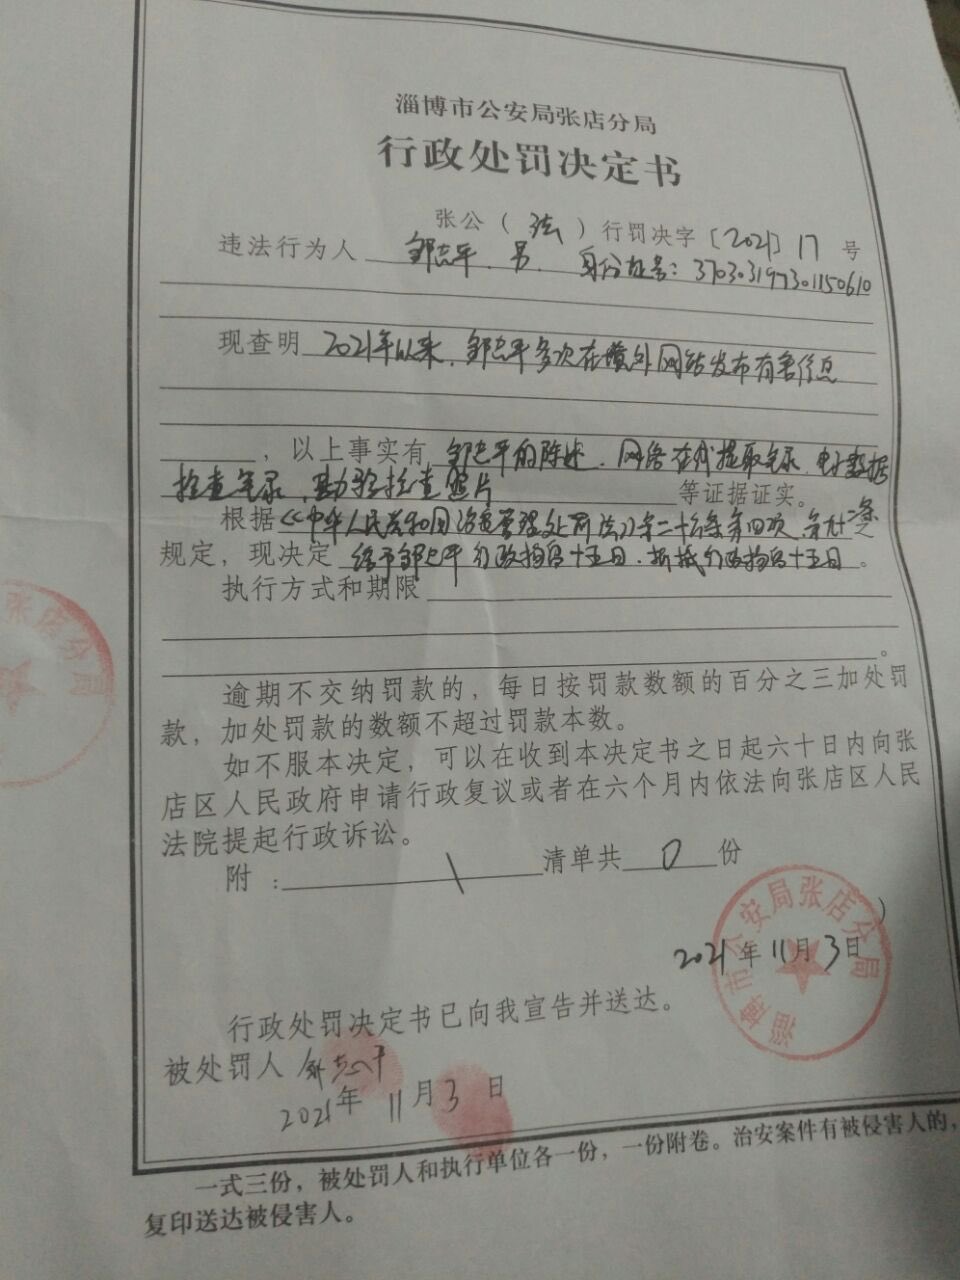 淄博市公安局张店分局
行政处罚决定书
张公（法）行罚决字〔2021〕17号
违法行为人 邹志平、男、身份证号：370303197301150610
现查明 2021年以来，邹志平多次在境外网站发布有害信息
，以上事实有 邹志平的陈述、网络在线提取笔录、电子数据
检查笔录、勘验检查照片 等证据证实。
根据《中华人民共和国治安管理处罚法》第二十六条第四项、第廿二条
规定，现决定 给予邹志平行政拘留十五日，折抵行政拘留十五日。
执行方式和期限
。
逾期不交纳罚款的，每日按罚款数额的百分之三加处罚
款，加处罚款的数额不超过罚款本数。
如不服本决定，可以在收到本决定书之日起六十日内向张
店区人民政府申请行政复议或者在六个月内依法向张店区人民
法院提起行政诉讼。
附：\ 清单共 0 份
淄博市公安局张店分局
2021年11月3日
行政处罚决定书已向我宣告并送达。
被处罚人 邹志平
2021年 11月3日
一式三份，被处罚人和执行单位各一份，一份附卷。治安案件有被侵害人的，
复印送达被侵害人。
张店分局